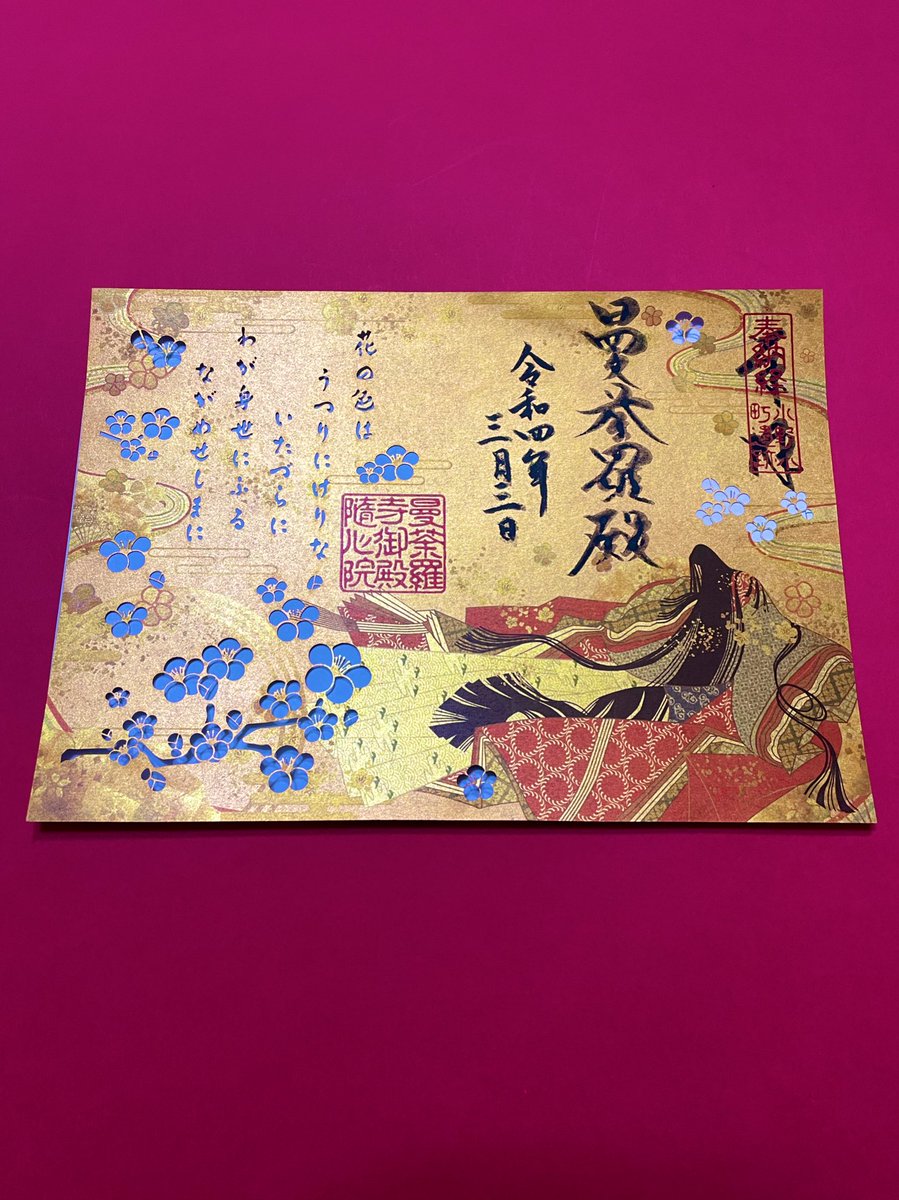 奉納経
曼荼羅殿
令和四年
三月三日
曼荼羅
寺御殿
隨心院
花の色は
うつりにけりな
いたづらに
わが身世にふる
ながめせしまに